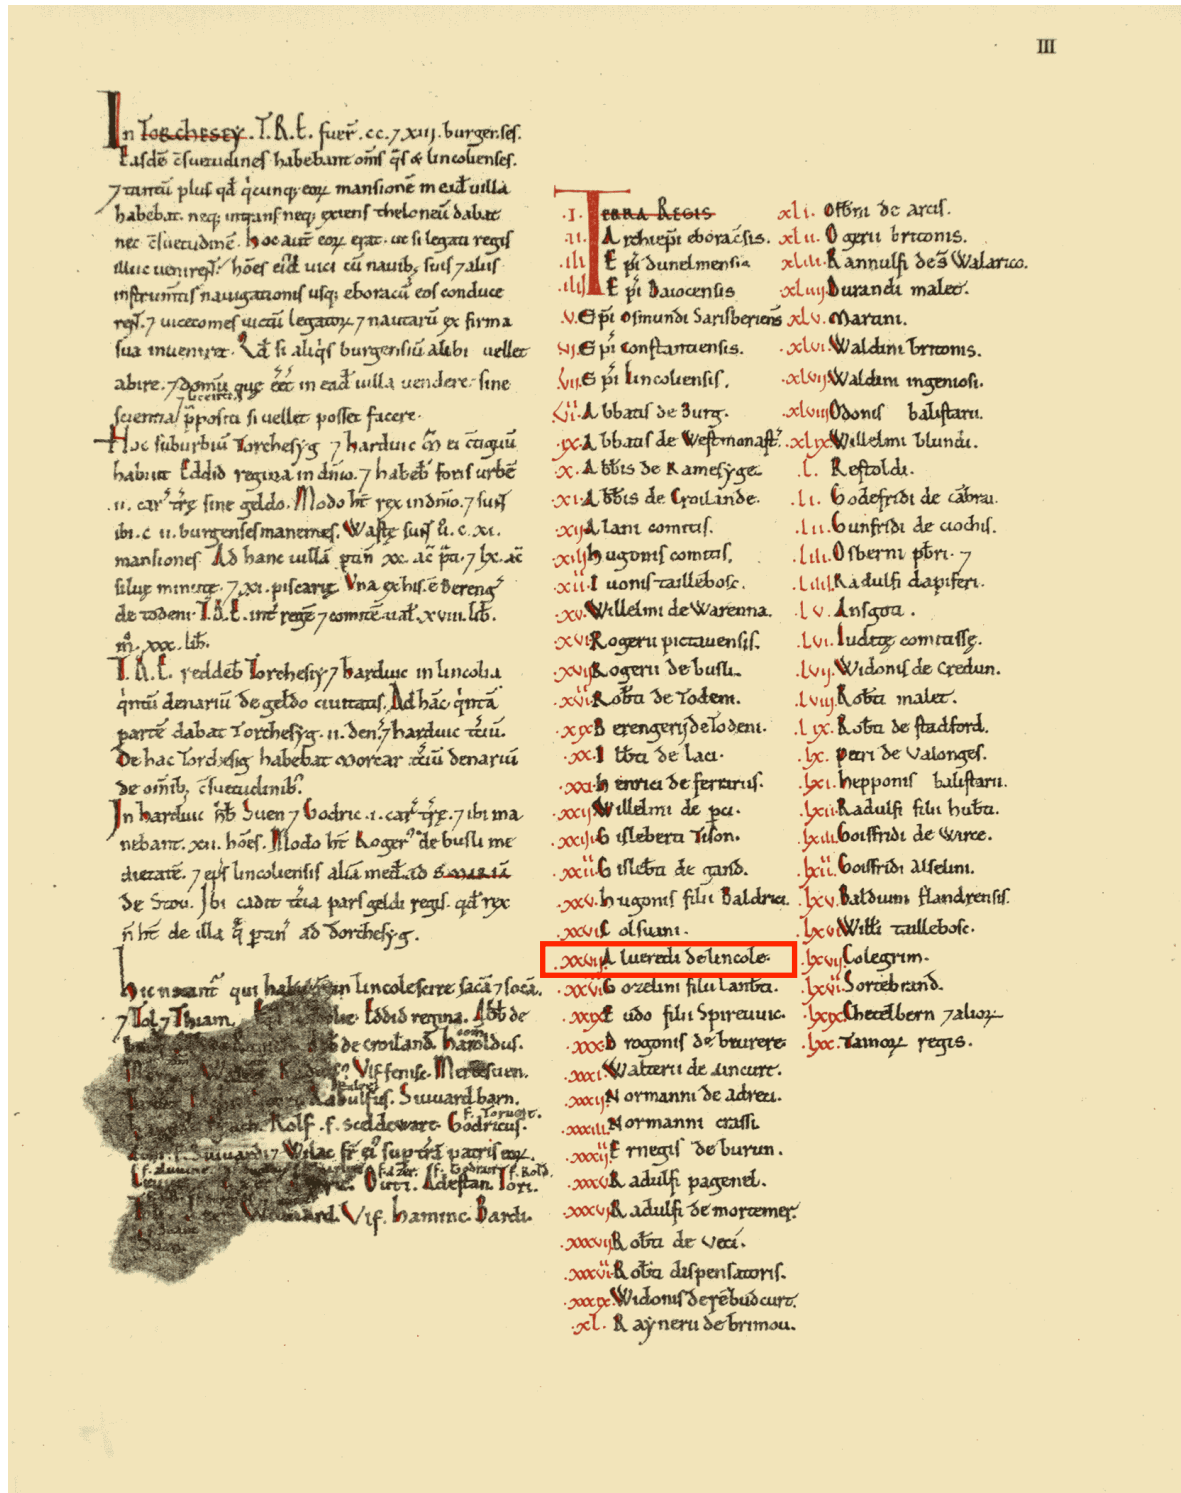 III
In TORCHESEY. T.R.E. fuer̄. cc. ⁊ xiii. burgenses.
Easdē c̄suetudines habebant om̄s q̄s & lincolienses.
⁊ tantū plus qd̄ q̇cunq; eoꝝ mansionē in ead̄ uilla
habebat. neq; intrans neq; exiens theloneū dabat
nec c̄suetudinē. hoc aut̄ eoꝝ erat. ut si legati regis
illuc uenirent. hōes eid̄ uici cū nauib; suis ⁊ aliis
instrum̄tis nauigationis usq; eboracū eos conduce
rent. ⁊ uicecomes uictū legatoꝝ ⁊ nautarū ex firma
sua inueniret. Qd̄ si aliq̇s burgensiū alibi uellet
abire. ⁊ domū que eēt in ead̄ uilla uendere. sine
scientia ⁊ licentia p̄positi si uellet posset facere.
Hoc suburbiū Torchesyg ⁊ harduic ei c̄tiguū
habuit Eddid regina in dn̄io. ⁊ habeb̄ foris urbē
ii. car̄ tr̄ę sine geldo. Modo ht̄ rex in dn̄io. ⁊ sunt
ibi. c ii. burgenses manentes. Wastę sunt ū. c. xi.
mansiones. Ad hanc uillā ptin̄ xx. ac̄ p̄ti. ⁊ lx. ac̄
siluę minutę. ⁊ xi. piscarię. Una ex his ē Bereng̕
de todeni. T.R.E. int̄ regē ⁊ comitē ual̄. xviii. lib̄.
m̊. xxx. lib̄.
T.R.E. reddeb̄ Torchesiy ⁊ harduic in lincolia
q̇ntū denariū de geldo ciuitatis. Ad hāc q̇ntā
partē dabat Torchesyg. ii. den̄. ⁊ harduic tc̄iū.
De hac Torchesig habebat Morcar tc̄iū denariū
de om̄ib; c̄suetudinib;.
In harduic hb̄ Suen ⁊ Godric. i. car̄ tr̄ę. ⁊ ibi ma
nebant. xii. hōes. Modo ht̄ Roger̕ de busli me
dietatē. ⁊ eps̄ lincoliensis aliā med̄ ad S MARIA
de Stou. Ibi cadit tc̄ia pars geldi regis. qd̄ rex
n̄ ht̄ de illa q̄ ptin̄ ad Torchesyg.
hic notant̄ qui habuer̄ in lincolescire sacā ⁊ socā.
⁊ Tol ⁊ Thiam. Eddid regina. Abb̄ de
de croiland. haroldus. com̄
Vlf fenisc. Merlesuen.
Radulfus. Siuuard barn.
Rolf. f. sceldeware. Godricus. f. Toruert.
Siuuard ⁊ Wilac fr̄ ei̕ sup tr̄ā patris eoꝝ.
Outi. f. azer. Adestan. f. Godram. Tori. f. Rold.
Vlf. haminc. Bardi.
Suan
.I. TERRA REGIS
.ii. Archiep̄i eborac̄sis.
.iii. Ep̄i dunelmensis
.iiii. Ep̄i Baiocensis
.v. Ep̄i Osmundi Sarisberiens̄
.vi. Ep̄i constantiensis.
.vii. Ep̄i lincoliensis.
.viii. Abbatis de Burg.
.ix. Abbatis de Westmonast̄.
.x. Abb̄is de Ramesyge.
.xi. Abb̄is de Croilande.
.xii. Alani comitis.
.xiii. hugonis comitis.
.xiiii. Iuonis taillebosc.
.xv. Willelmi de Warenna.
.xvi. Rogerii pictauensis.
.xvii. Rogerii de busli.
.xviii. Rotb̄ti de Todeni.
.xix. Berengerij de Todeni.
.xx. Ilb̄ti de laci.
.xxi. henrici de ferrariis.
.xxii. Willelmi de pci.
.xxiii. Gisleberti Tison.
.xxiiii. Gisleb̄ti de gand.
.xxv. hugonis filii Baldrici.
.xxvi. Colsuani.
.xxvii. Alueredi de lincole.
.xxviii. Gozelini filii Lanb̄ti.
.xxix. Eudo filii Spireuuic.
.xxx. Drogonis de beurere
.xxxi. Walterii de aincurt.
.xxxii. Normanni de adreci.
.xxxiii. Normanni crassi
.xxxiiii. Ernegis de burun.
.xxxv. Radulfi pagenel.
.xxxvi. Radulfi de mortemer.
.xxxvii. Rotb̄ti de Veci.
.xxxviii. Rotb̄ti dispensatoris.
.xxxix. Widonis de rēbudcurt.
.xl. Rayneru de brimou.
.xli. Osb̄ni de arcis.
.xlii. Ogerii britonis.
.xliii. Rannulfi de S̄ Walarico.
.xliiij. Durandi malet.
.xlv. Martini.
.xlvi. Waldini britonis.
.xlvii. Waldini ingeniosi.
.xlviii. Odonis balistarii.
.xlix. Willelmi blundi.
.l. Restoldi.
.li. Godefridi de cābrai.
.lii. Gunfridi de ciochis.
.liii. Osberni pb̄ri. ⁊
.liiii. Radulfi dapiferi.
.lv. Ansgoti.
.lvi. Iuditę comitissę.
.lvii. Widonis de Credun.
.lviii. Rotb̄ti malet.
.lix. Rotb̄ti de stadford.
.lx. petri de Valonges.
.lxi. hepponis balistarii.
.lxii. Radulfi filii hub̄ti.
.lxiii. Goisfridi de Wirce.
.lxiiii. Goisfridi alselini.
.lxv. Balduini flandrensis.
.lxvi. Willi taillebosc.
.lxvii. Colegrim.
.lxviii. Sortebrand.
.lxix. Chetelbern ⁊ alioꝝ
.lxx. Tainoꝝ regis.